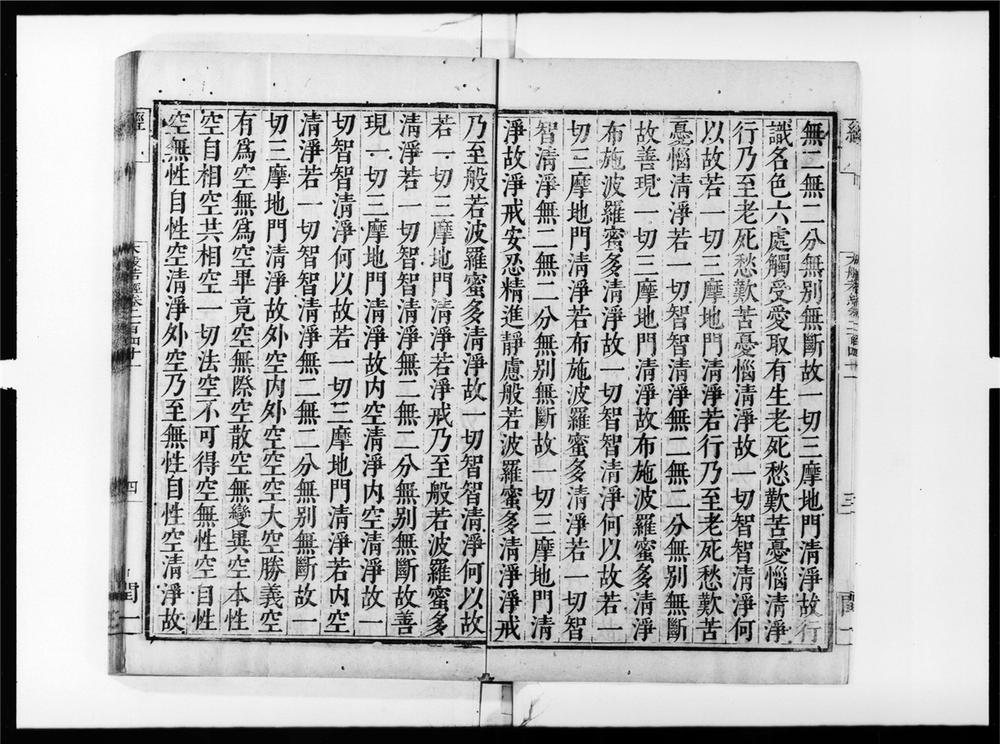 無二無二分無別無斷故一切三摩地門清淨故行
識名色六處觸受愛取有生老死愁歎苦憂惱清淨
行乃至老死愁歎苦憂惱清淨故一切智智清淨何
以故若一切三摩地門清淨若行乃至老死愁歎苦
憂惱清淨若一切智智清淨無二無二分無別無斷
故善現一切三摩地門清淨故布施波羅蜜多清淨
布施波羅蜜多清淨故一切智智清淨何以故若一
切三摩地門清淨若布施波羅蜜多清淨若一切智
智清淨無二無二分無別無斷故一切三摩地門清
淨故淨戒安忍精進靜慮般若波羅蜜多清淨淨戒
乃至般若波羅蜜多清淨故一切智智清淨何以故
若一切三摩地門清淨若淨戒乃至般若波羅蜜多
清淨若一切智智清淨無二無二分無別無斷故善
現一切三摩地門清淨故內空清淨內空清淨故一
切智智清淨何以故若一切三摩地門清淨若內空
清淨若一切智智清淨無二無二分無別無斷故一
切三摩地門清淨故外空內外空空空大空勝義空
有爲空無爲空畢竟空無際空散空無變異空本性
空自相空共相空一切法空不可得空無性空自性
空無性自性空清淨外空乃至無性自性空清淨故
大般若經卷二百四十一
四